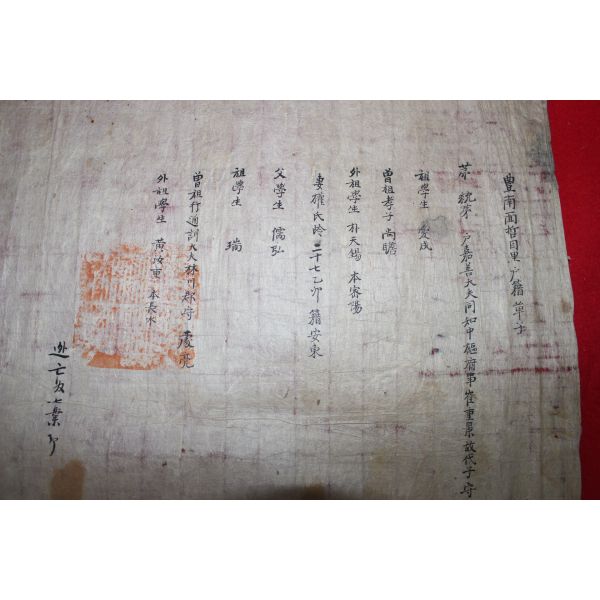 豊南面哲目里戶籍草子
第 統第 戶嘉善大夫同知中樞府事崔重景故代子守
祖學生 愛成
曾祖孝子 尚瞻
外祖學生 朴天錫 本密陽
妻權氏齡二十七乙卯 籍安東
父學生 儒弘
祖學生 瑞
曾祖行通訓大夫林川郡守 處亮
外祖學生 黃 重 本長水
逃亡奴